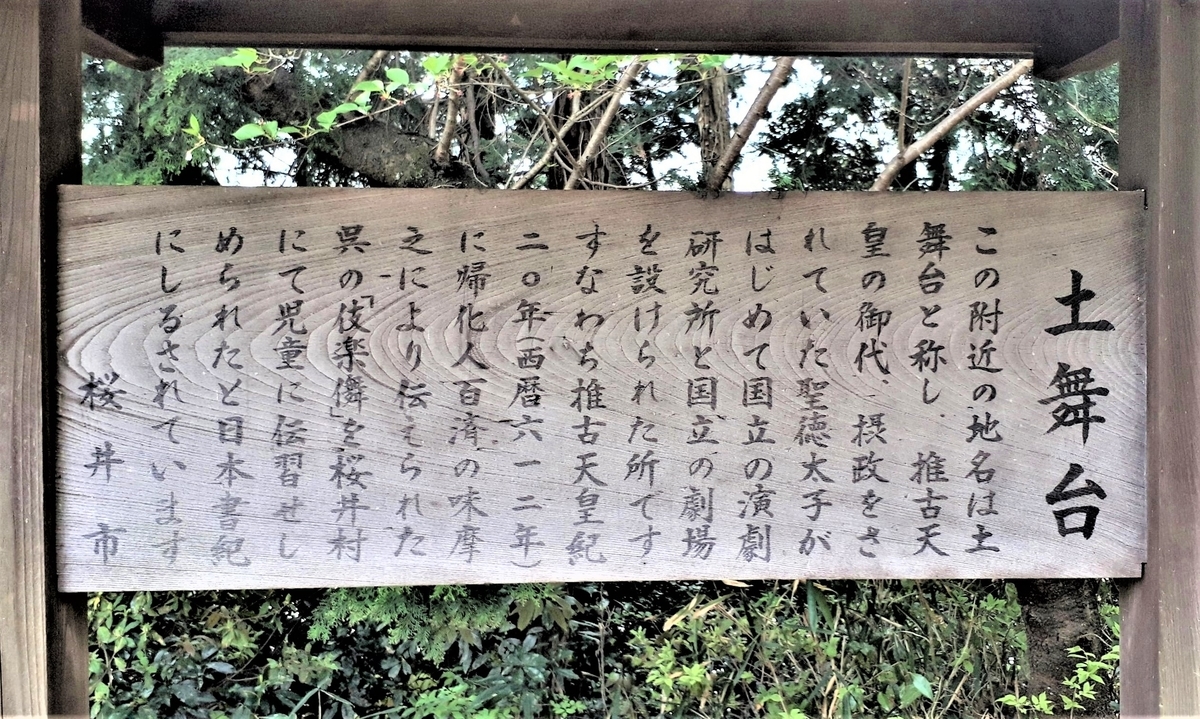 土舞台
この附近の地名は土
舞台と称し 推古天
皇の御代、摂政をさ
れていた聖徳太子が
はじめて国立の演劇
研究所と国立の劇場
を設けられた所です
すなわち推古天皇紀
二〇年(西暦六一二年)
に帰化人百済の味摩
之により伝えられた
呉の「伎楽儛」を桜井村
にて児童に伝習せし
められたと日本書紀
にしるされています
桜井市